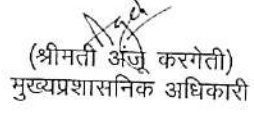 (श्रीमती अंजू करगेती)
मुख्यप्रशासनिक अधिकारी